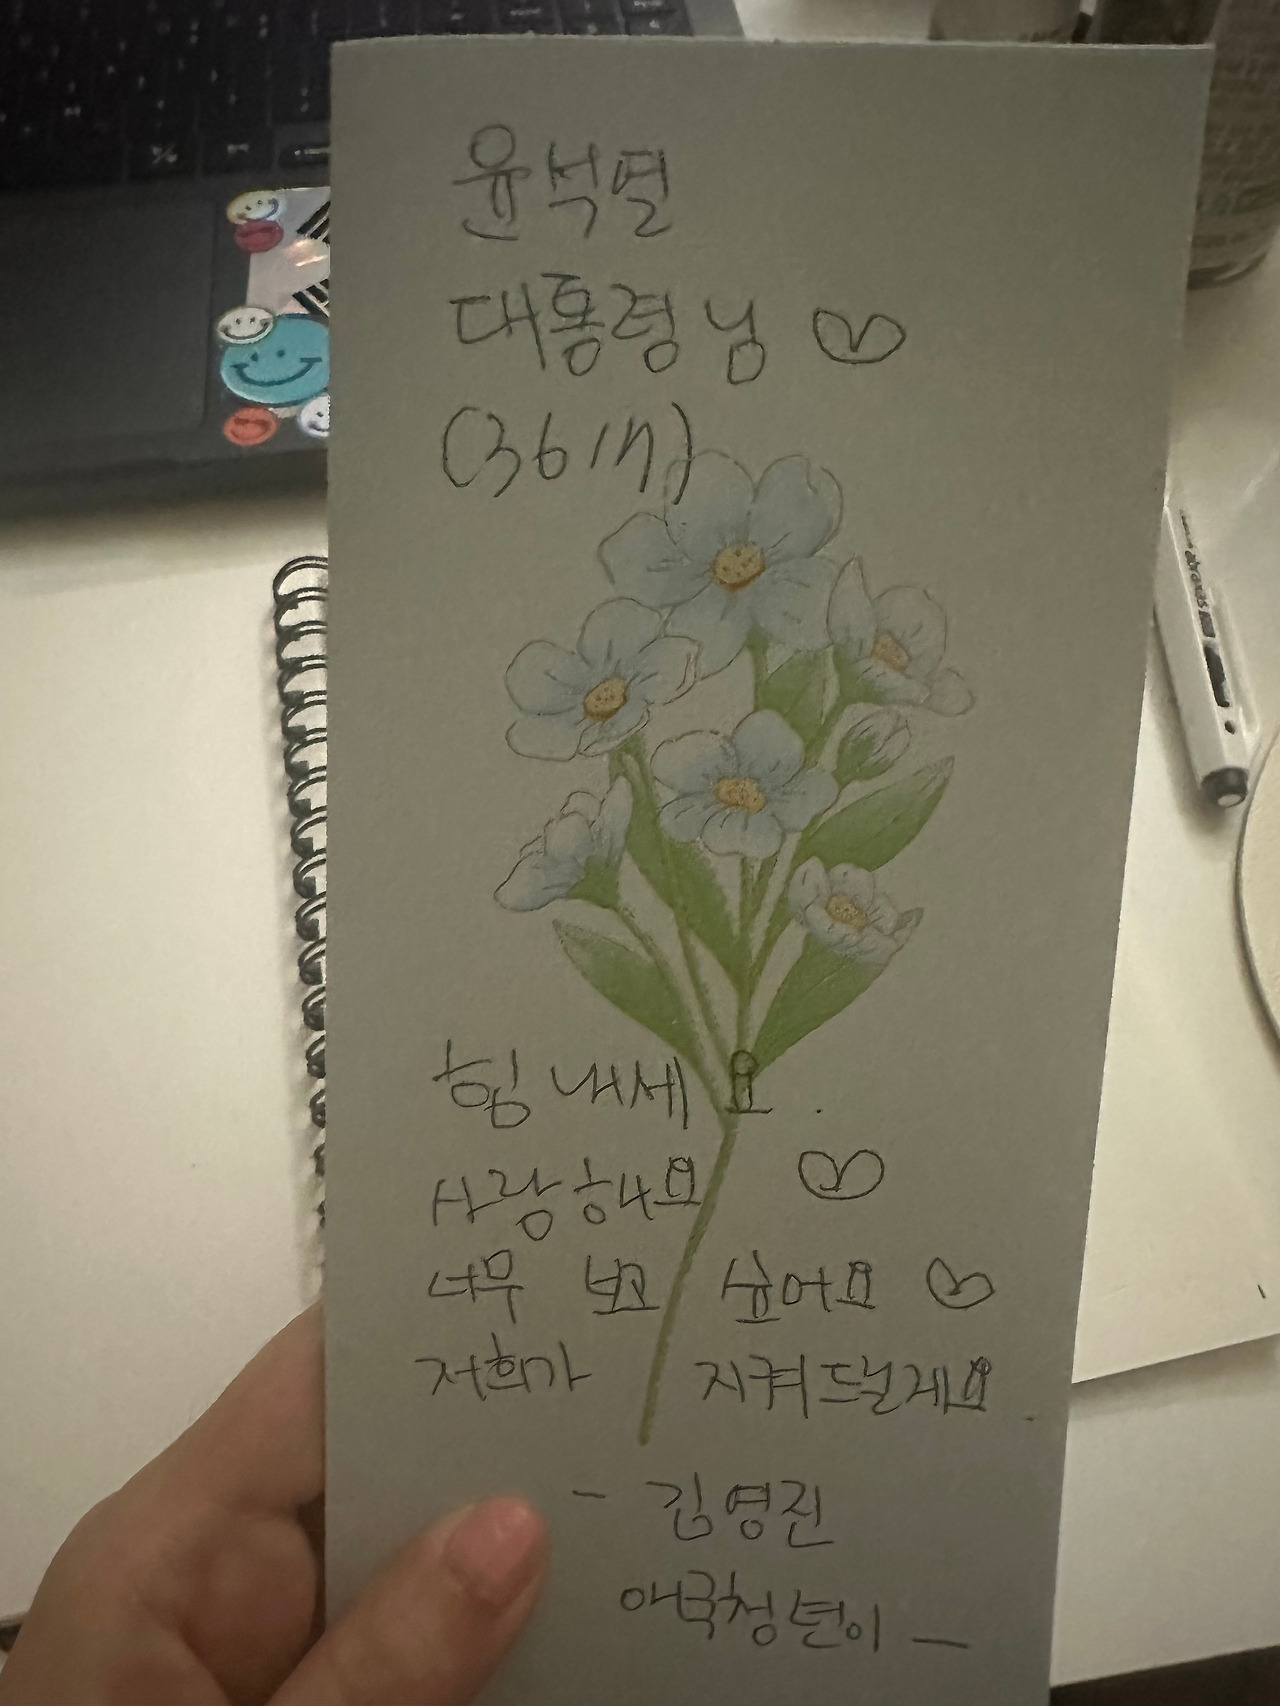 윤석열
대통령님 ♡
(3617)
힘내세요.
사랑해요 ♡
너무 보고 싶어요 ♡
저희가 지켜드릴게요.
- 김영진
애국청년이 -